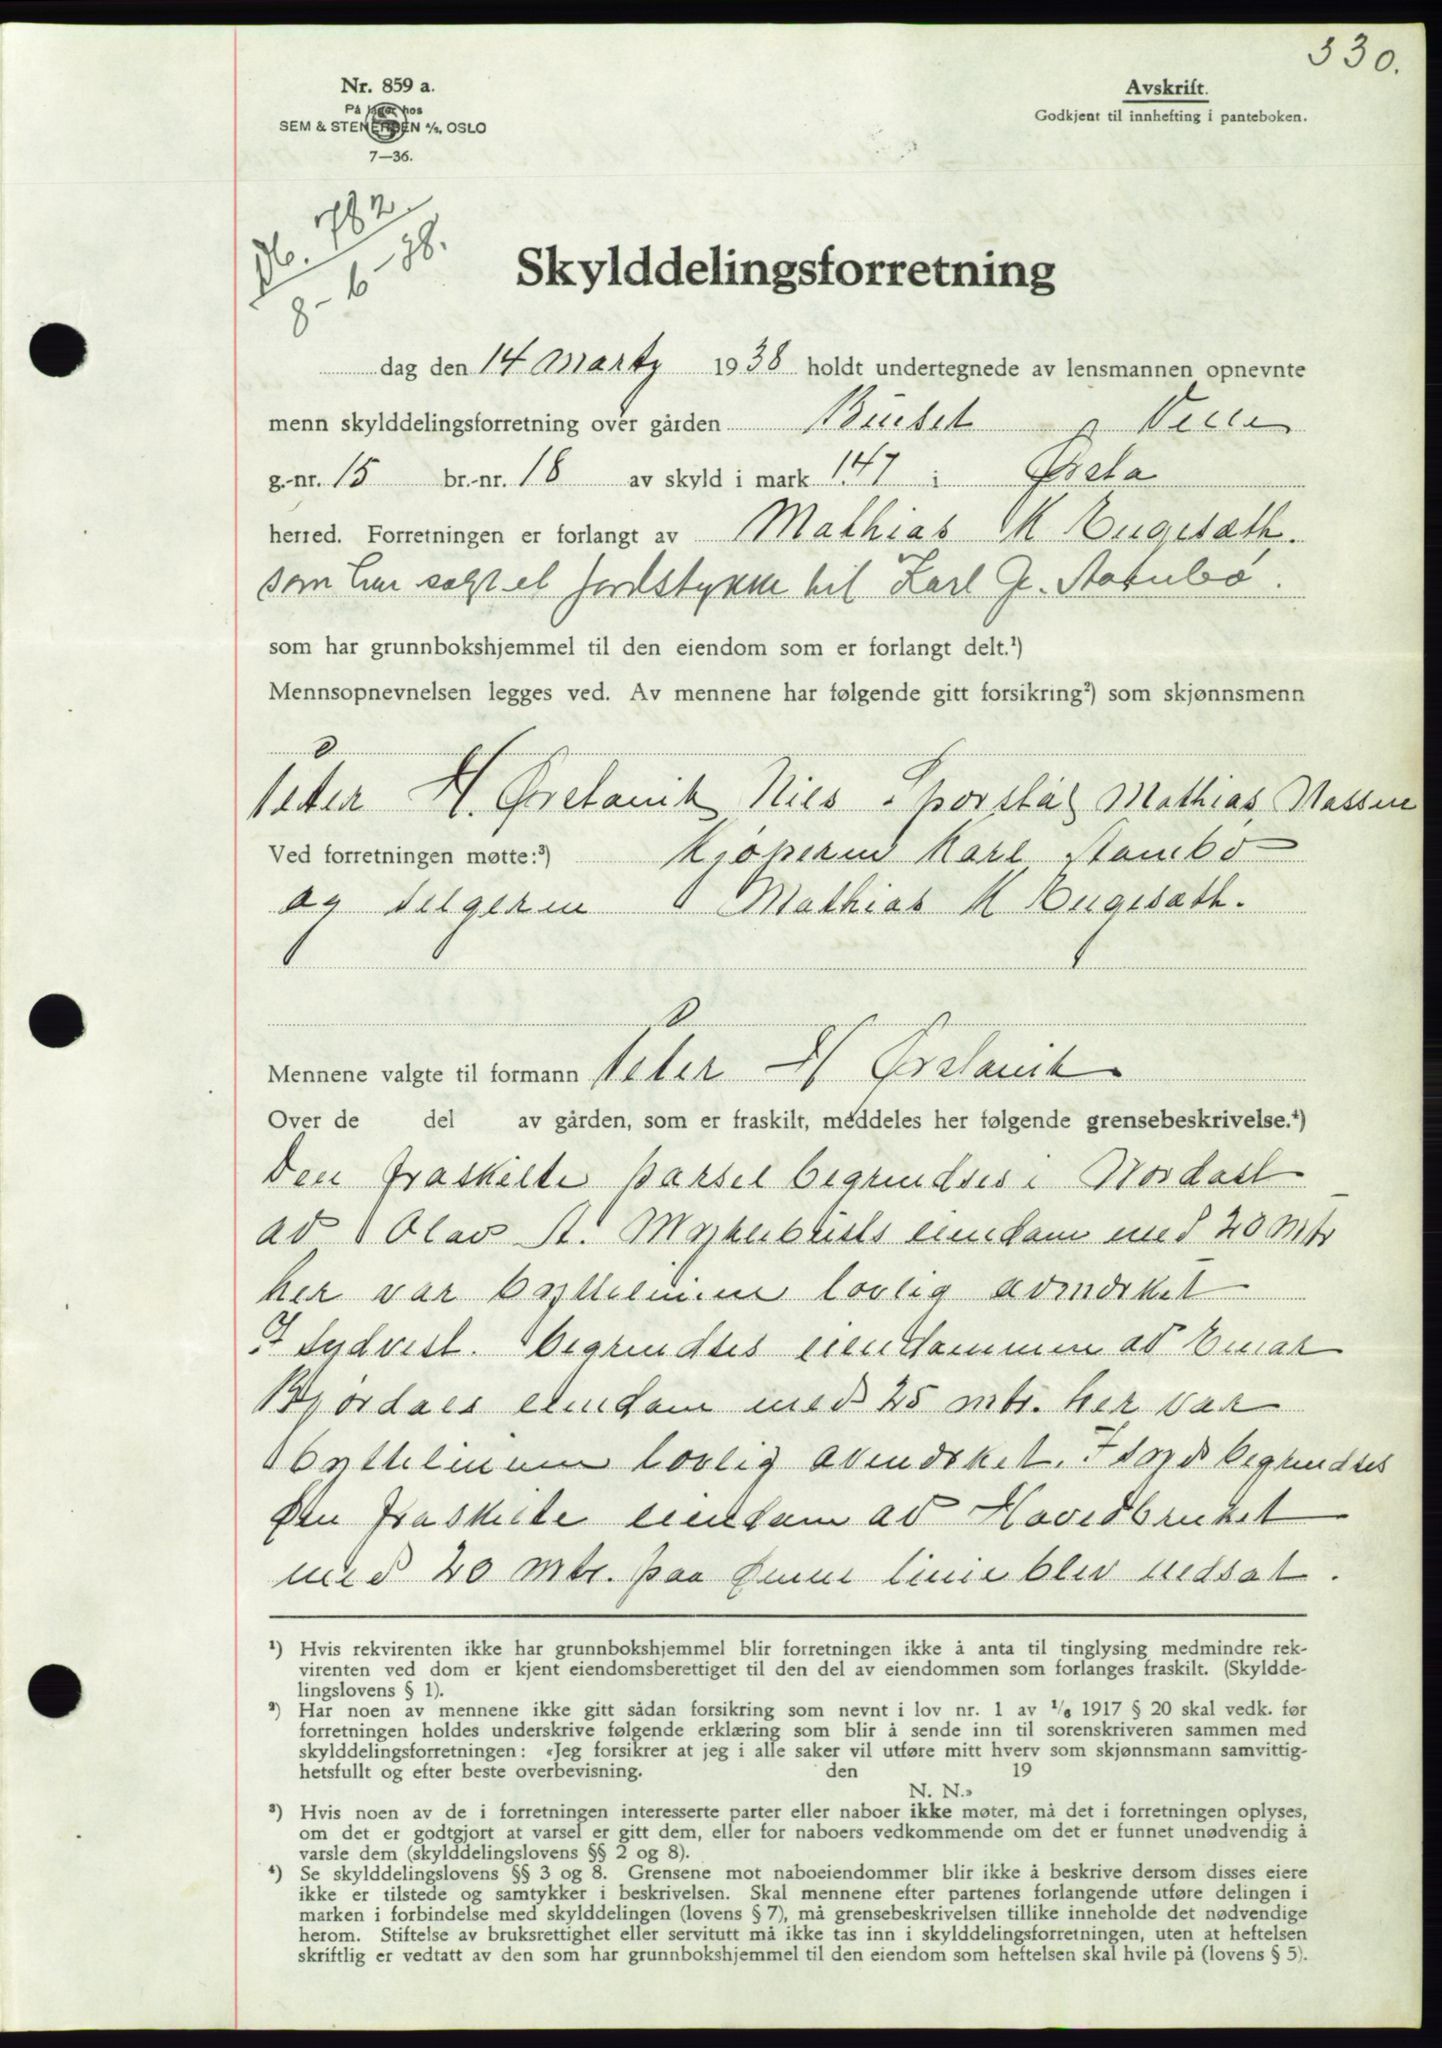 330.
Nr. 859 a.
På lager hos
SEM & STENERSEN A/S, OSLO
7—36.
Avskrift.
Godkjent til innhefting i panteboken.
Nb. 782
8-6-38.
Skylddelingsforretning
dag den 14 marty 1938 holdt undertegnede av lensmannen opnevnte
menn skylddelingsforretning over gården Buset Velle
g.-nr. 15 br.-nr. 18 av skyld i mark 1.47 i Ørsta
herred. Forretningen er forlangt av Mathias K Engesæth.
som har solgt et jordstykke til Karl G. Aambø.
som har grunnbokshjemmel til den eiendom som er forlangt delt.¹)
Mennsopnevnelsen legges ved. Av mennene har følgende gitt forsikring²) som skjønnsmenn
Peter H. Ørstavik Nils Mathias Nassen
Ved forretningen møtte:³) Kjøperen Karl Aambø
og selgeren Mathias K Engesæth.
Mennene valgte til formann Peter H Ørstavik
Over de del av gården, som er fraskilt, meddeles her følgende grensebeskrivelse.⁴)
Den fraskilte parsel begrendses i Nordøst
av Olav A. Myklebusts eiendom med 20 mtr
her var byttelinien lovlig avmerket
I Sydvest. begrendses eiendommen av Einar
Bjørdals eiendom med 25 mtr. her var
byttelinien lovlig avmerket. I syd begrendses
den fraskilte eiendom av Hovedbruket
med 20 mtr. paa denne linie blev nedsat.
¹) Hvis rekvirenten ikke har grunnbokshjemmel blir forretningen ikke å anta til tinglysing medmindre rek-
virenten ved dom er kjent eiendomsberettiget til den del av eiendommen som forlanges fraskilt. (Skyldde-
lingslovens § 1).
²) Har noen av mennene ikke gitt sådan forsikring som nevnt i lov nr. 1 av ¹/₆ 1917 § 20 skal vedk. før
forretningen holdes underskrive følgende erklæring som blir å sende inn til sorenskriveren sammen med
skylddelingsforretningen: «Jeg forsikrer at jeg i alle saker vil utføre mitt hverv som skjønnsmann samvittig-
hetsfullt og efter beste overbevisning. den 19
N. N.»
³) Hvis noen av de i forretningen interesserte parter eller naboer ikke møter, må det i forretningen oplyses,
om det er godtgjort at varsel er gitt dem, eller for naboers vedkommende om det er funnet unødvendig å
varsle dem (skylddelingslovens §§ 2 og 8).
⁴) Se skylddelingslovens §§ 3 og 8. Grensene mot naboeiendommer blir ikke å beskrive dersom disses eiere
ikke er tilstede og samtykker i beskrivelsen. Skal mennene efter partenes forlangende utføre delingen i
marken i forbindelse med skylddelingen (lovens § 7), må grensebeskrivelsen tillike inneholde det nødvendige
herom. Stiftelse av bruksrettighet eller servitutt må ikke tas inn i skylddelingsforretningen, uten at heftelsen
skriftlig er vedtatt av den som har grunnbokshjemmel til den eiendom som heftelsen skal hvile på (lovens § 5).